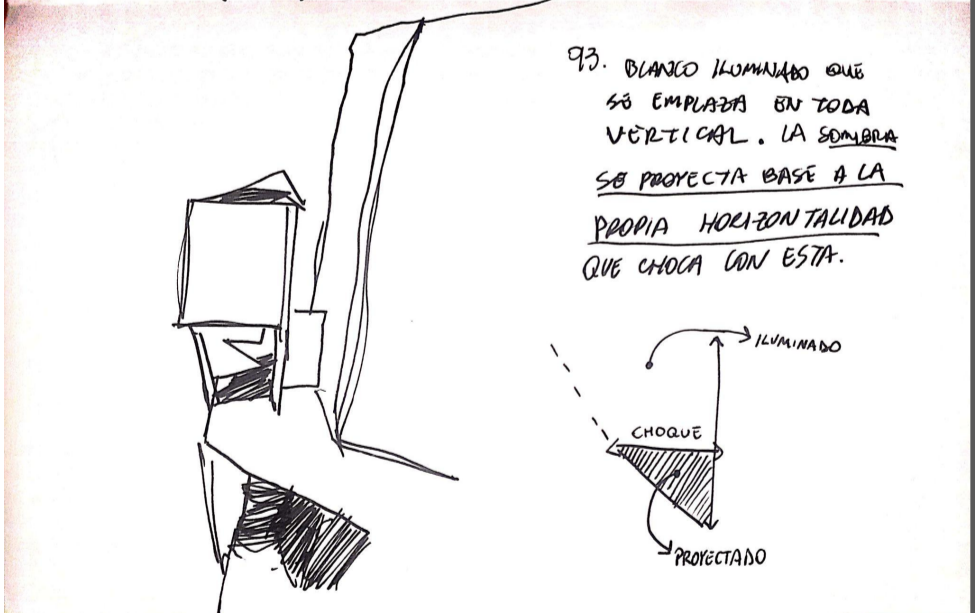 93. BLANCO ILUMINADO QUE
SE EMPLAZA EN TODA
VERTICAL. LA SOMBRA
SE PROYECTA BASE A LA
PROPIA HORIZONTALIDAD
QUE CHOCA CON ESTA.
ILUMINADO
CHOQUE
PROYECTADO